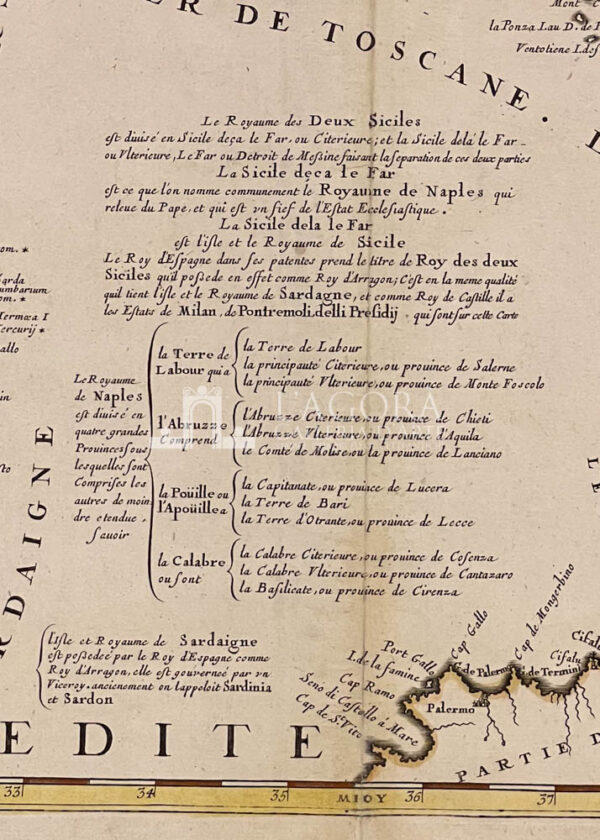 ER DE TOSCANE.
Mont
la Ponza Lau D. de
Ventotiene I. desf
Le Royaume des Deux Siciles
est diuisé en Sicile deça le Far, ou Citerieure; et la Sicile delá le Far
ou Vlterieure, Le Far ou Detroit de Messine faisant la separation de ces deux parties
La Sicile deça le Far
est ce que l'on nomme communement le Royaume de Naples qui
releue du Pape, et qui est vn fief de l'Estat Ecclesiastique.
La Sicile dela le Far
est l'isle et le Royaume de Sicile
Le Roy d'Espagne dans ses patentes prend le titre de Roy des deux
Siciles qu'il possede en effet comme Roy d'Arragon; C'est en la meme qualité
quil tient l'isle et le Royaume de Sardagne, et comme Roy de Castille il a
les Estats de Milan, de Pontremoli, delli Presidij qui sont sur cette Carte
om. *
arda
umbarium
om. *
Hermæa I
ercurij *
allo
Le Royaume
de Naples
est diuisé en
quatre grandes
Prouinces sous
lesquelles sont
Comprises les
autres de moin
dre etendue,
sauoir
la Terre de
Labour qui a
la Terre de Labour
la principauté Citerieure, ou prouince de Salerne
la principauté Vlterieure, ou prouince de Monte Foscolo
l'Abruzze
Comprend
l'Abruzze Citerieure, ou prouince de Chieti
l'Abruzze Vlterieure, ou prouince d'Aquila
le Comté de Molise, ou la prouince de Lanciano
L'AGORA
la Poüille ou
l'Apoüille a
la Capitanate, ou prouince de Lucera
la Terre de Bari
la Terre d'Otrante, ou prouince de Lecce
la Calabre
ou sont
la Calabre Citerieure, ou prouince de Cosenza
la Calabre Vlterieure, ou prouince de Cantazaro
la Basilicate, ou prouince de Cirenza
RDAIGNE
l'isle et Royaume de Sardaigne
est possedée par le Roy d'Espagne comme
Roy d'Arragon, elle est gouuerneé par vn
Viceroy. anciennement on l'appeloit Sardinia
et Sardon
Port Gallo
I. de la famine
Cap Ramo
Seno di Castello á Mare
Cap de St. Vito
Cap Gallo
Cap de Mongerbino
G. de Palermo
Palermo
G. de Termini
Cifalu
Cifalu
PARTIE D
EDITE
33 34 35 MIDY 36 37